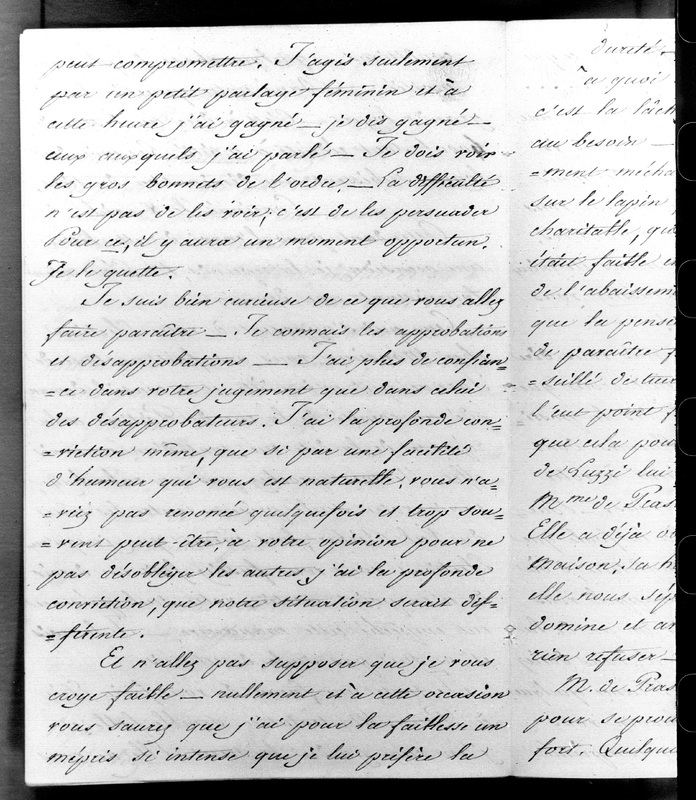 peut compromettre. J'agis seulement
par un petit parlage féminin et à
cette heure j'ai gagné — je dis gagné —
ceux auxquels j'ai parlé — Je dois voir
les gros bonnets de l'ordre. — La difficulté
n'est pas de les voir; c'est de les persuader
Pour ce, il y aura un moment opportun.
Je le guette.
Je suis bien curieuse de ce que vous allez
faire paraître — Je connais les approbations
et désapprobations — J'ai plus de confian=
=ce dans votre jugement que dans celui
des désapprobateurs. J'ai la profonde con=
=viction même, que si par une facilité
d'humeur qui vous est naturelle, vous n'a=
=viez pas renoncé quelquefois et trop sou=
=vent peut-être, à votre opinion pour ne
pas désobliger les autres, j'ai la profonde
conviction, que notre situation serait dif=
=férente.
Et n'allez pas supposer que je vous
croye faible — nullement et à cette occasion
vous saurez que j'ai pour la faiblesse un
mépris si intense que je lui préfère la
dureté —
à quoi
c'est la lâch
au besoin —
=ment mécha
sur le lapin
charitable, qu
était faible e
de l'abaissem
que la pensé
de paraître f
=seillé de tuer
l'eut point f
que cela pou
de Luzzi lui
Mme de Pras
Elle a déja o
maison. Sa h
elle nous sép
domine et a
rien refuser —
M. de Pras
pour se prou
fort. Quelqu